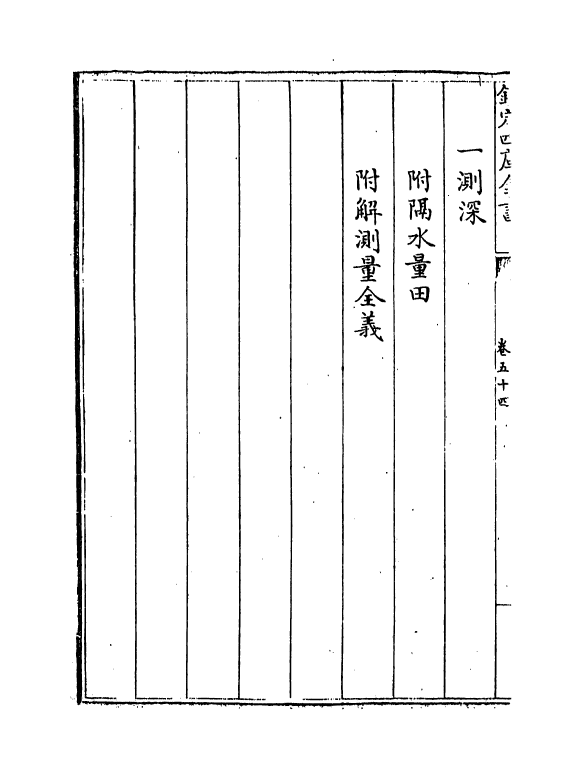 欽定四庫全書
卷五十四
一測深
附隔水量田
附解測量全義